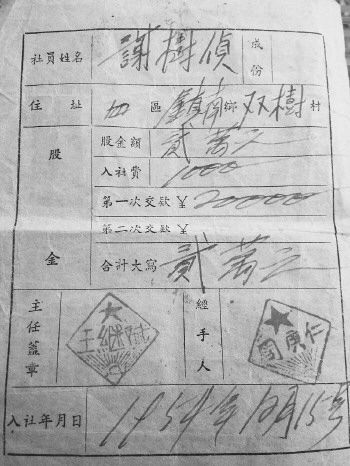 社員姓名 謝樹偵 成份
住址 四區鎮南鄉双樹村
股金
股金額 貳萬元
入社費 1000
第一次交款¥ 20000
第二次交款¥
合計大寫 貳萬元
主任蓋章 經手人
入社年月日 1954年12月15号